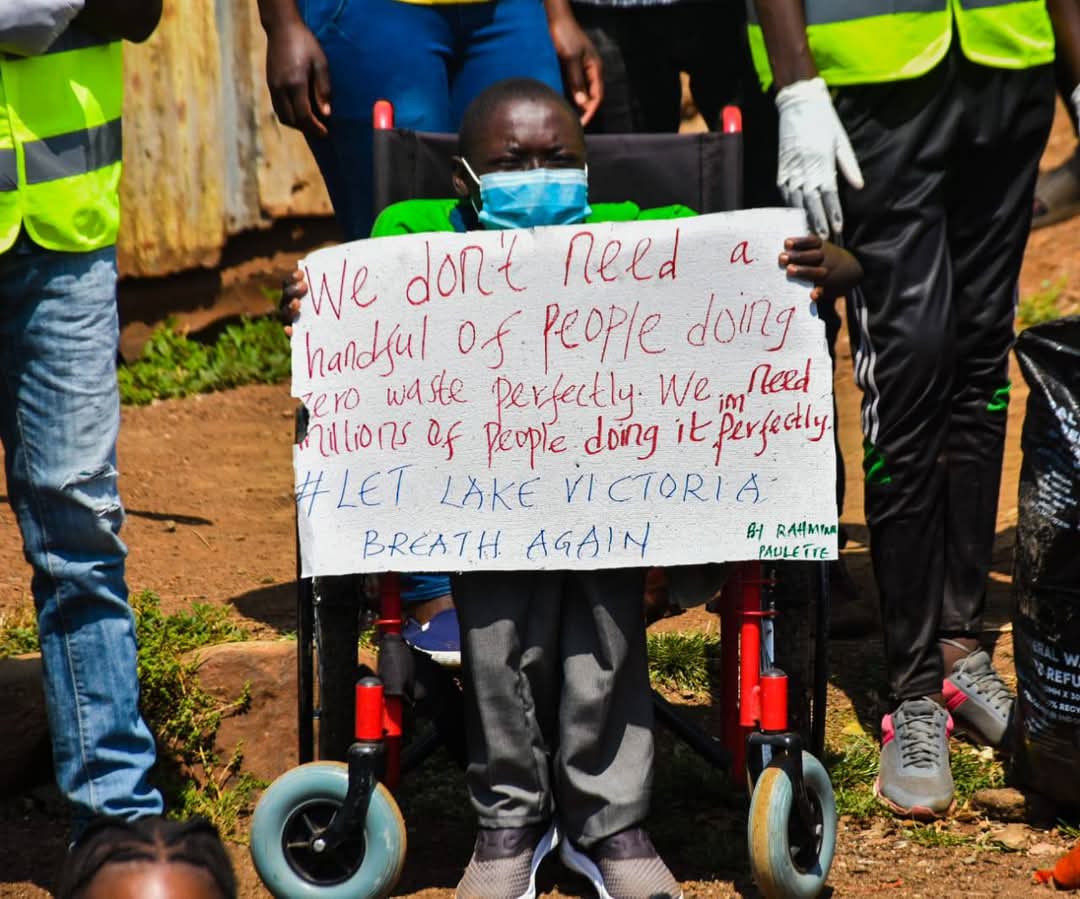 We don't need a
handful of People doing
zero waste perfectly. We need
millions of People doing it imperfectly.
#LET LAKE VICTORIA
BREATH AGAIN
BY
PAULETTE